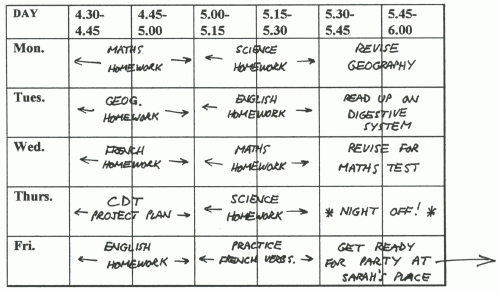 DAY 4.30- 4.45- 5.00- 5.15- 5.30- 5.45-
4.45 5.00 5.15 5.30 5.45 6.00
Mon. MATHS SCIENCE REVISE
HOMEWORK HOMEWORK GEOGRAPHY
Tues. GEOG. ENGLISH READ UP ON
HOMEWORK HOMEWORK DIGESTIVE
SYSTEM
Wed. FRENCH MATHS REVISE FOR
HOMEWORK HOMEWORK MATHS TEST
Thurs. CDT SCIENCE
PROJECT PLAN HOMEWORK * NIGHT OFF! *
Fri. ENGLISH PRACTICE GET READY
HOMEWORK FRENCH VERBS. FOR PARTY AT
SARAH'S PLACE